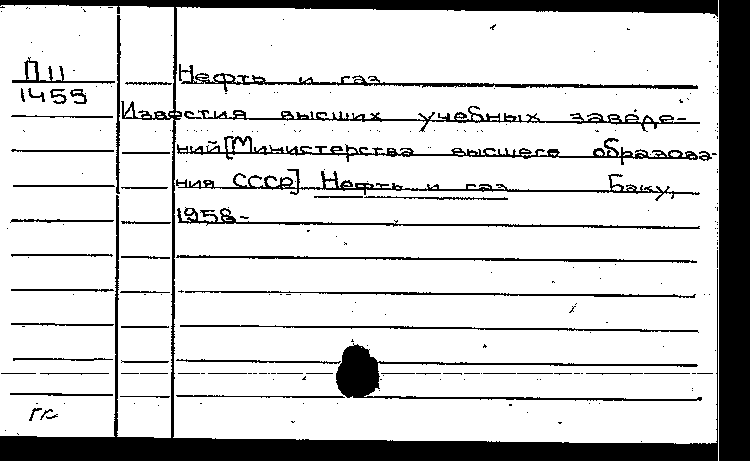 П11
1455
Нефть и газ
Известия высших учебных заведе-
ний [Министерства высшего образова-
ния СССР] Нефть и газ Баку,
1958-
гс